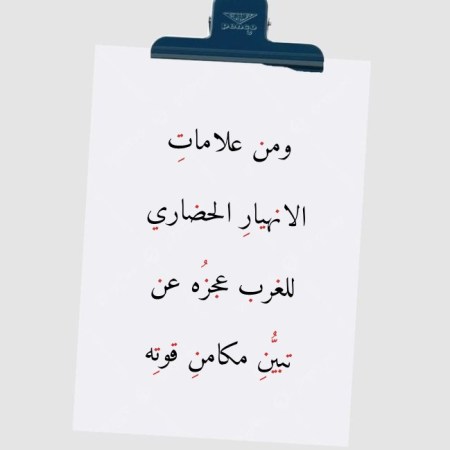 ومن علاماتِ
الانهيارِ الحضاري
للغرب عجزُه عن
تبيُّنِ مكامنِ قوتِه